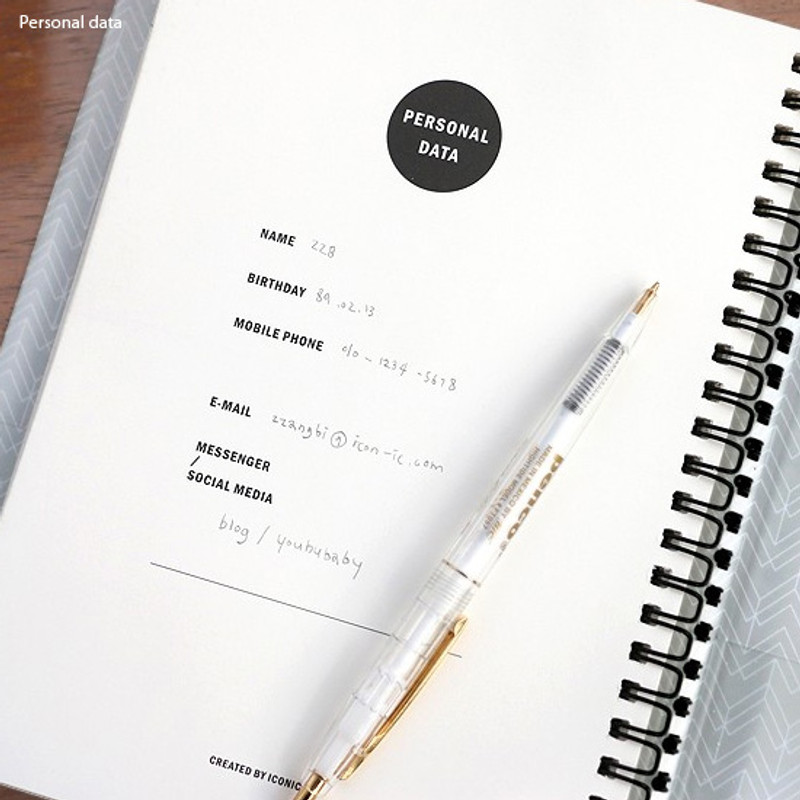 Personal data
PERSONAL
DATA
NAME zzB
BIRTHDAY 89.02.13
MOBILE PHONE 010-1234-5678
E-MAIL zzangbi@icon-ic.com
MESSENGER
/
SOCIAL MEDIA
blog / youhubaby
penco
MADE IN MEXICO BY
CREATED BY ICONIC